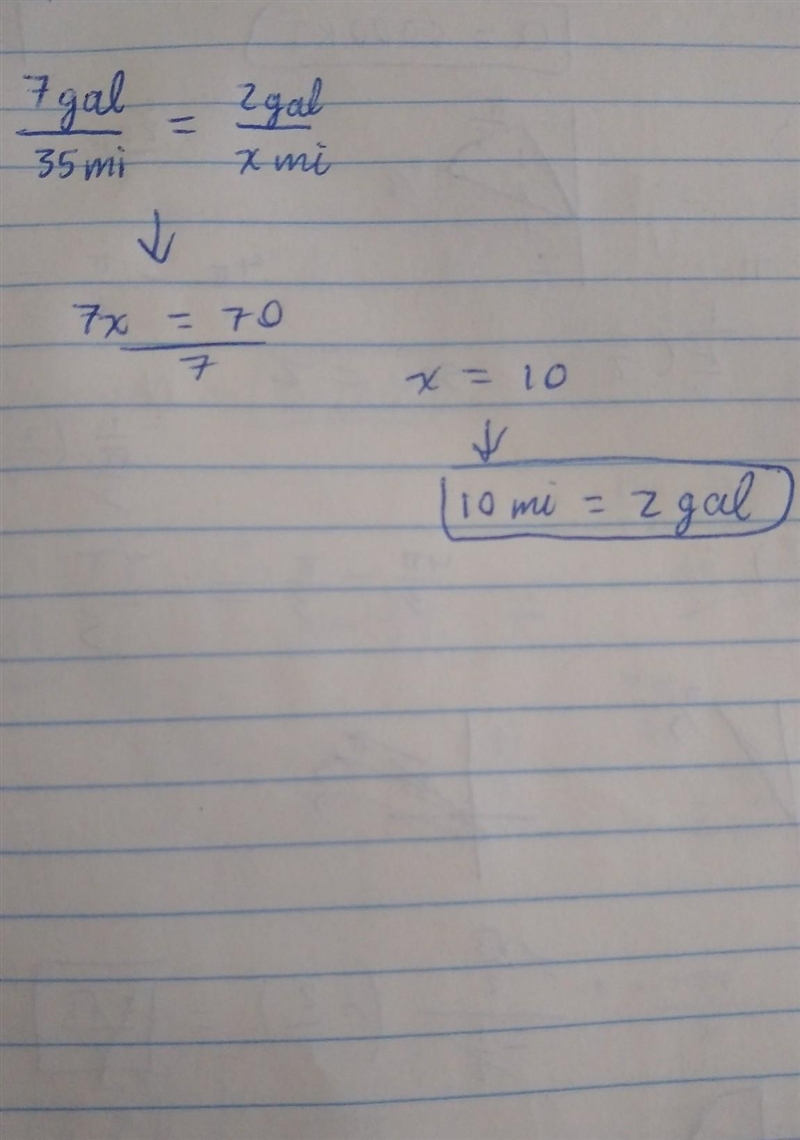 7 gal / 35 mi = 2 gal / x mi
↓
7x = 70
7
x = 10
↓
10 mi = 2 gal